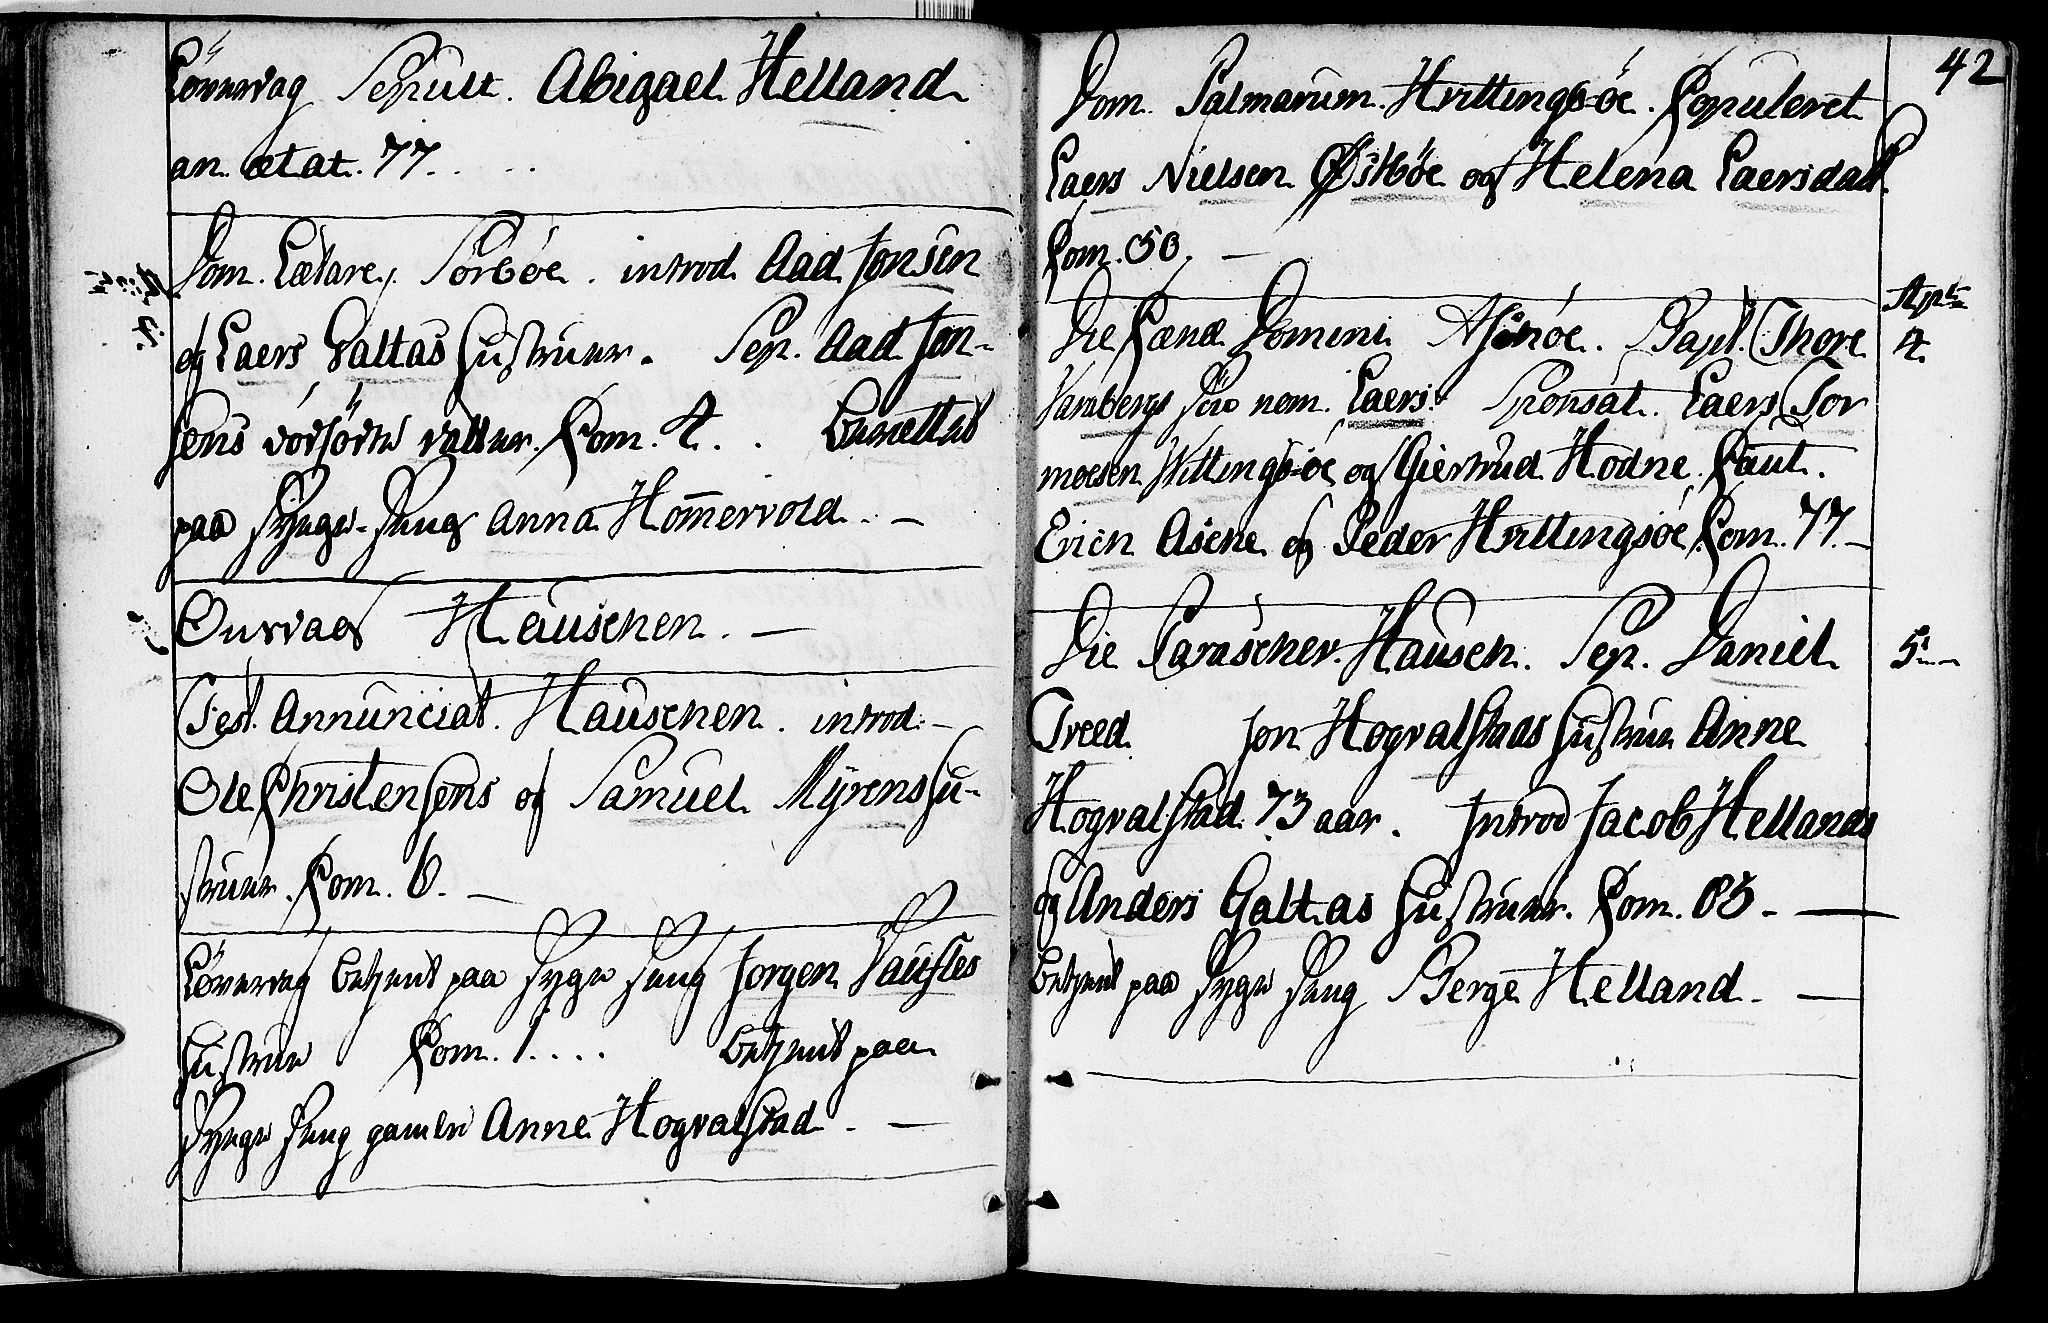 Löverdag Sepult. Abigael Helland
an. ætat. 77.
Dom. Lætare, Sörböe. introd. Aad Jonsen
og Laers Galtas Hustruer. Sep. Aad Jon-
sens dödfödte datter. Com. 4. . berettet
paa Syge-Seng Anna Hom̄ervold. –
Onsdag Hauschen. –
Fest. Annunciat. Hauschen. introd. –
Ole Christensens og Samuel Myrens Hu-
struer. Com. 6. –
Löverdag betient paa Syge Seng Jorgen
Hustrue Com. 1. . . . betient paa
Syge Seng gamle Anne Hogvalstad. –
42
Dom. Palmarum. Hvittingsöe. Copuleret
Laers Nielsen Østböe og Helena Laersdatt.
Com. 50. –
Apr:
Die Cænæ Domini Aschöe. Bapt. Thore 4.
Vambergs Sön nom. Laers. Sponsat. Laers Tor
moesen Hvittingsöe og Giertrud Hodne. Caut.
Erich Asche og Peder Hvittingsöe Com. 77. –
Die Paraschev. Hausch. Sep. Daniel 5. –
Treed. Jon Hogvalstads Hustrue Anne
Hogvalstad. 73 aar. Introd Jacob Hellands
og Anders Galtas Hustruer. Com. 85. –
betient paa Syge Seng Berge Helland. –